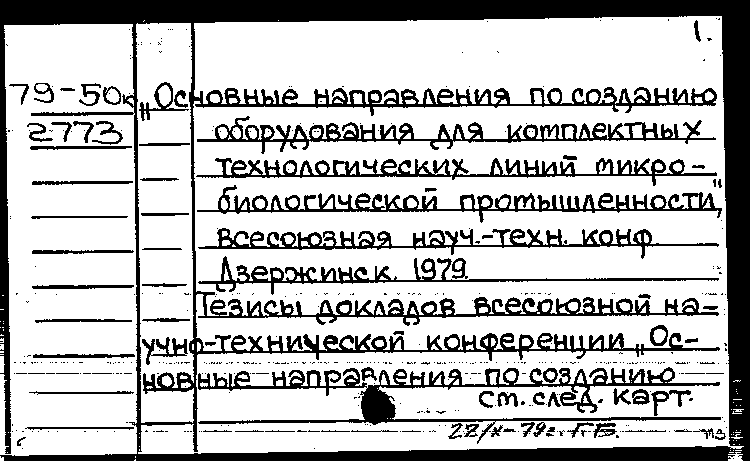 1.
79-50к „Основные направления по созданию
2773 оборудования для комплектных
технологических линий микро-
биологической промышленности",
всесоюзная науч.-техн. конф.
Дзержинск. 1979.
Тезисы докладов всесоюзной на-
учно-технической конференции „Ос-
новные направления по созданию
см. след. карт.
22/X-79г. Г.Б.